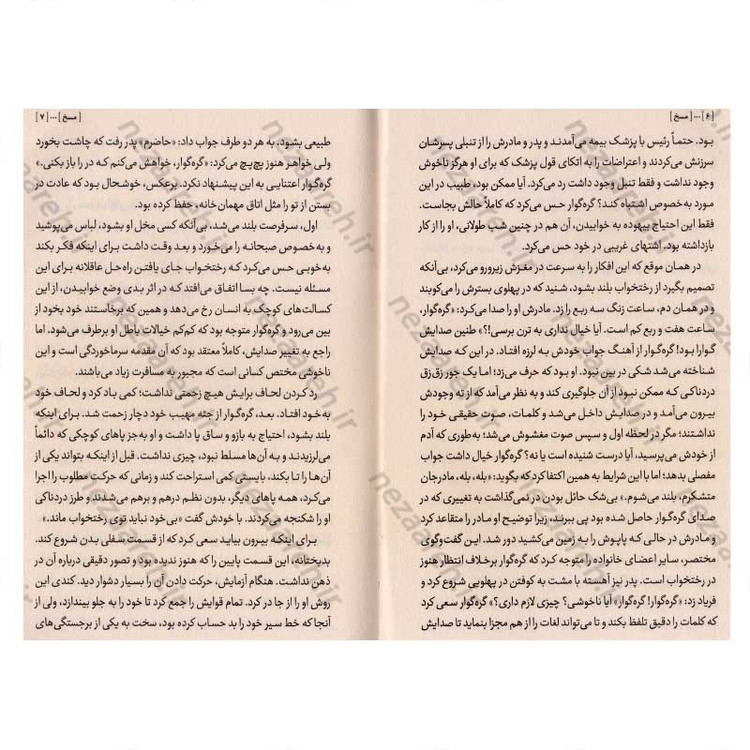 [۶]...[ مسخ ]
بود. حتماً رئیس با پزشک بیمه می‌آمدند و پدر و مادرش را از تنبلی پسرشان
سرزنش می‌کردند و اعتراضات را به اتکای قول پزشک که برای او هرگز ناخوش
وجود نداشت و فقط تنبل وجود داشت رد می‌کرد. آیا ممکن بود، طبیب در این
مورد به‌خصوص اشتباه کند؟ گره‌گوار حس می‌کرد که کاملاً حالش بجاست.
فقط این احتیاج بیهوده به خوابیدن، آن هم در چنین شب طولانی، او را از کار
بازداشته بود. اشتهای غریبی در خود حس می‌کرد.
در همان موقع که این افکار را به سرعت در مغزش زیرورو می‌کرد، بی‌آنکه
تصمیم بگیرد از رختخواب بلند بشود، شنید که در پهلوی بسترش را می‌کوبند
و در همان دم، ساعت زنگ سه ربع را زد. مادرش او را صدا می‌کرد: «گره‌گوار،
ساعت هفت و ربع کم است. آیا خیال نداری به ترن برسی!؟» طنین صدایش
گوارا بود! گره‌گوار از آهنگ جواب خودش به لرزه افتاد. در این که صدایش
شناخته می‌شد شکی در بین نبود. او بود که حرف می‌زد؛ اما یک جور زق‌زق
دردناکی که ممکن نبود از آن جلوگیری کند و به نظر می‌آمد که از ته وجودش
بیرون می‌آمد و در صدایش داخل می‌شد و کلمات، صوت حقیقی خود را
نداشتند؛ مگر در لحظه اول و سپس صوت مغشوش می‌شد؛ به‌طوری که آدم
از خودش می‌پرسید، آیا درست شنیده است یا نه؟ گره‌گوار خیال داشت جواب
مفصلی بدهد؛ اما با این شرایط به همین اکتفا کرد که بگوید: «بله، بله، مادرجان
متشکرم، بلند می‌شوم.» بی‌شک حائل بودن در نمی‌گذاشت به تغییری که در
صدای گره‌گوار حاصل شده بود پی ببرند، زیرا توضیح او مادر را متقاعد کرد
و مادرش در حالی که پاپوش را به زمین می‌کشید دور شد. این گفت‌وگوی
مختصر، سایر اعضای خانواده را متوجه کرد که گره‌گوار برخلاف انتظار هنوز
در رختخواب است. پدر نیز آهسته با مشت به کوفتن در پهلویی شروع کرد و
فریاد زد: «گره‌گوار! گره‌گوار» آیا ناخوشی؟ چیزی لازم داری؟» گره‌گوار سعی کرد
که کلمات را دقیق تلفظ بکند و تا می‌تواند لغات را از هم مجزا بنماید تا صدایش
[ مسخ ]...[۷]
طبیعی بشود. به هر دو طرف جواب داد: «حاضرم» پدر رفت که چاشت بخورد
ولی خواهر هنوز پچ‌پچ می‌کرد: «گره‌گوار، خواهش می‌کنم که در را باز بکنی.»
گره‌گوار اعتنایی به این پیشنهاد نکرد. برعکس، خوشحال بود که عادت در
بستن از تو را مثل اتاق مهمان‌خانه، حفظ کرده بود.
اول، سرفرصت بلند می‌شد، بی‌آنکه کسی مخل او بشود، لباس می‌پوشید
و به‌خصوص صبحانه را می‌خورد و بعد وقت داشت برای اینکه فکر بکند
به‌خوبی حس می‌کرد که رختخواب جای یافتن راه‌حل عاقلانه برای این
مسئله نیست. چه بسا اتفاق می‌افتد که در اثر بدی وضع خوابیدن، از این
کسالت‌های کوچک به انسان رخ می‌دهد و همین که برخاستند خود بخود از
بین می‌رود و گره‌گوار متوجه بود که کم‌کم خیالات باطل او برطرف می‌شود. اما
راجع به تغییر صدایش، کاملاً معتقد بود که آن مقدمه سرماخوردگی است و این
ناخوشی مختص کسانی است که مجبور به مسافرت زیاد می‌باشند.
رد کردن لحاف برایش هیچ زحمتی نداشت؛ کمی باد کرد و لحاف خود
به‌خود افتاد، بعد، گره‌گوار از جثه مهیب خود دچار زحمت شد. برای اینکه
بلند بشود، احتیاج به بازو و ساق پا داشت و او به‌جز پاهای کوچکی که دائماً
می‌لرزیدند و به آن‌ها مسلط نبود، چیزی نداشت. قبل از اینکه بتواند یکی از
آن‌ها را تا بکند، بایستی کمی استراحت کند و زمانی که حرکت مطلوب را اجرا
می‌کرد، همه پاهای دیگر، بدون نظم درهم و برهم می‌شدند و طرز دردناکی
او را شکنجه می‌کردند. با خودش گفت «بی‌خود نباید توی رختخواب ماند.»
برای اینکه بیرون بیاید سعی کرد که از قسمت سفلی بدن شروع کند.
بدبختانه، این قسمت پایین را که هنوز ندیده بود و تصور دقیقی درباره آن در
ذهن نداشت. هنگام آزمایش، حرکت دادن آن را بسیار دشوار دید. کندی این
روش او را از جا در کرد. تمام قوایش را جمع کرد تا خود را به جلو بیندازد، ولی از
آنجا که خط سیر خود را بد حساب کرده بود، سخت به یکی از برجستگی‌های
nezaareh.ir